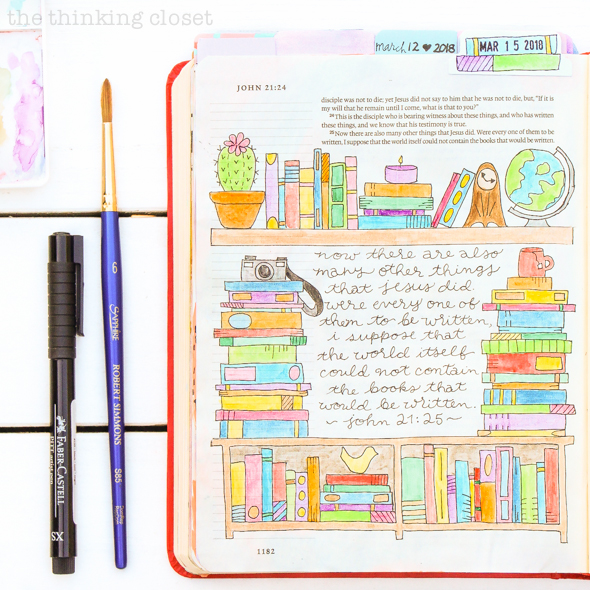 the thinking closet
march 12 ♥ 2018
MAR 15 2018
JOHN 21:24
disciple was not to die; yet Jesus did not say to him that he was not to die, but, "If it is
my will that he remain until I come, what is that to you?"
24 This is the disciple who is bearing witness about these things, and who has written
these things, and we know that his testimony is true.
25 Now there are also many other things that Jesus did. Were every one of them to be
written, I suppose that the world itself could not contain the books that would be written.
now there are also
many other things
that jesus did.
were every one of
them to be written,
i suppose that
the world itself
could not contain
the books that
would be written.
~ John 21:25 ~
1182
6
SAPPHIRE
ROBERT SIMMONS
S85
FABER-CASTELL
PITT artist pen
XS